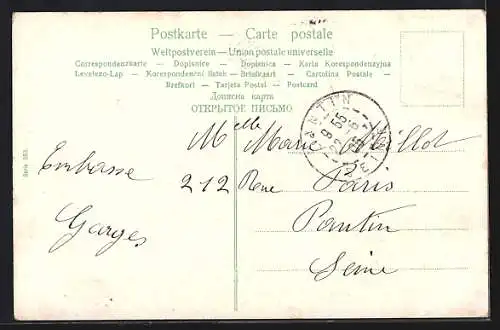 Postkarte — Carte postale
Weltpostverein — Union postale universelle
Correspondenzkarte — Dopisnice — Dopisnica — Karta Korespondenzyjna
Levelezo-Lap — Korespondenční lístek — Briefkaart — Cartolina Postale —
Brefkort — Tarjeta Postal — Postcard
Дописна карта
ОТКРЫТОЕ ПИСЬМО
PANTIN
Mlle Marie Millot
212 Rue Paris
Pantin
Seine
Embasse
Garges
Serie 353.